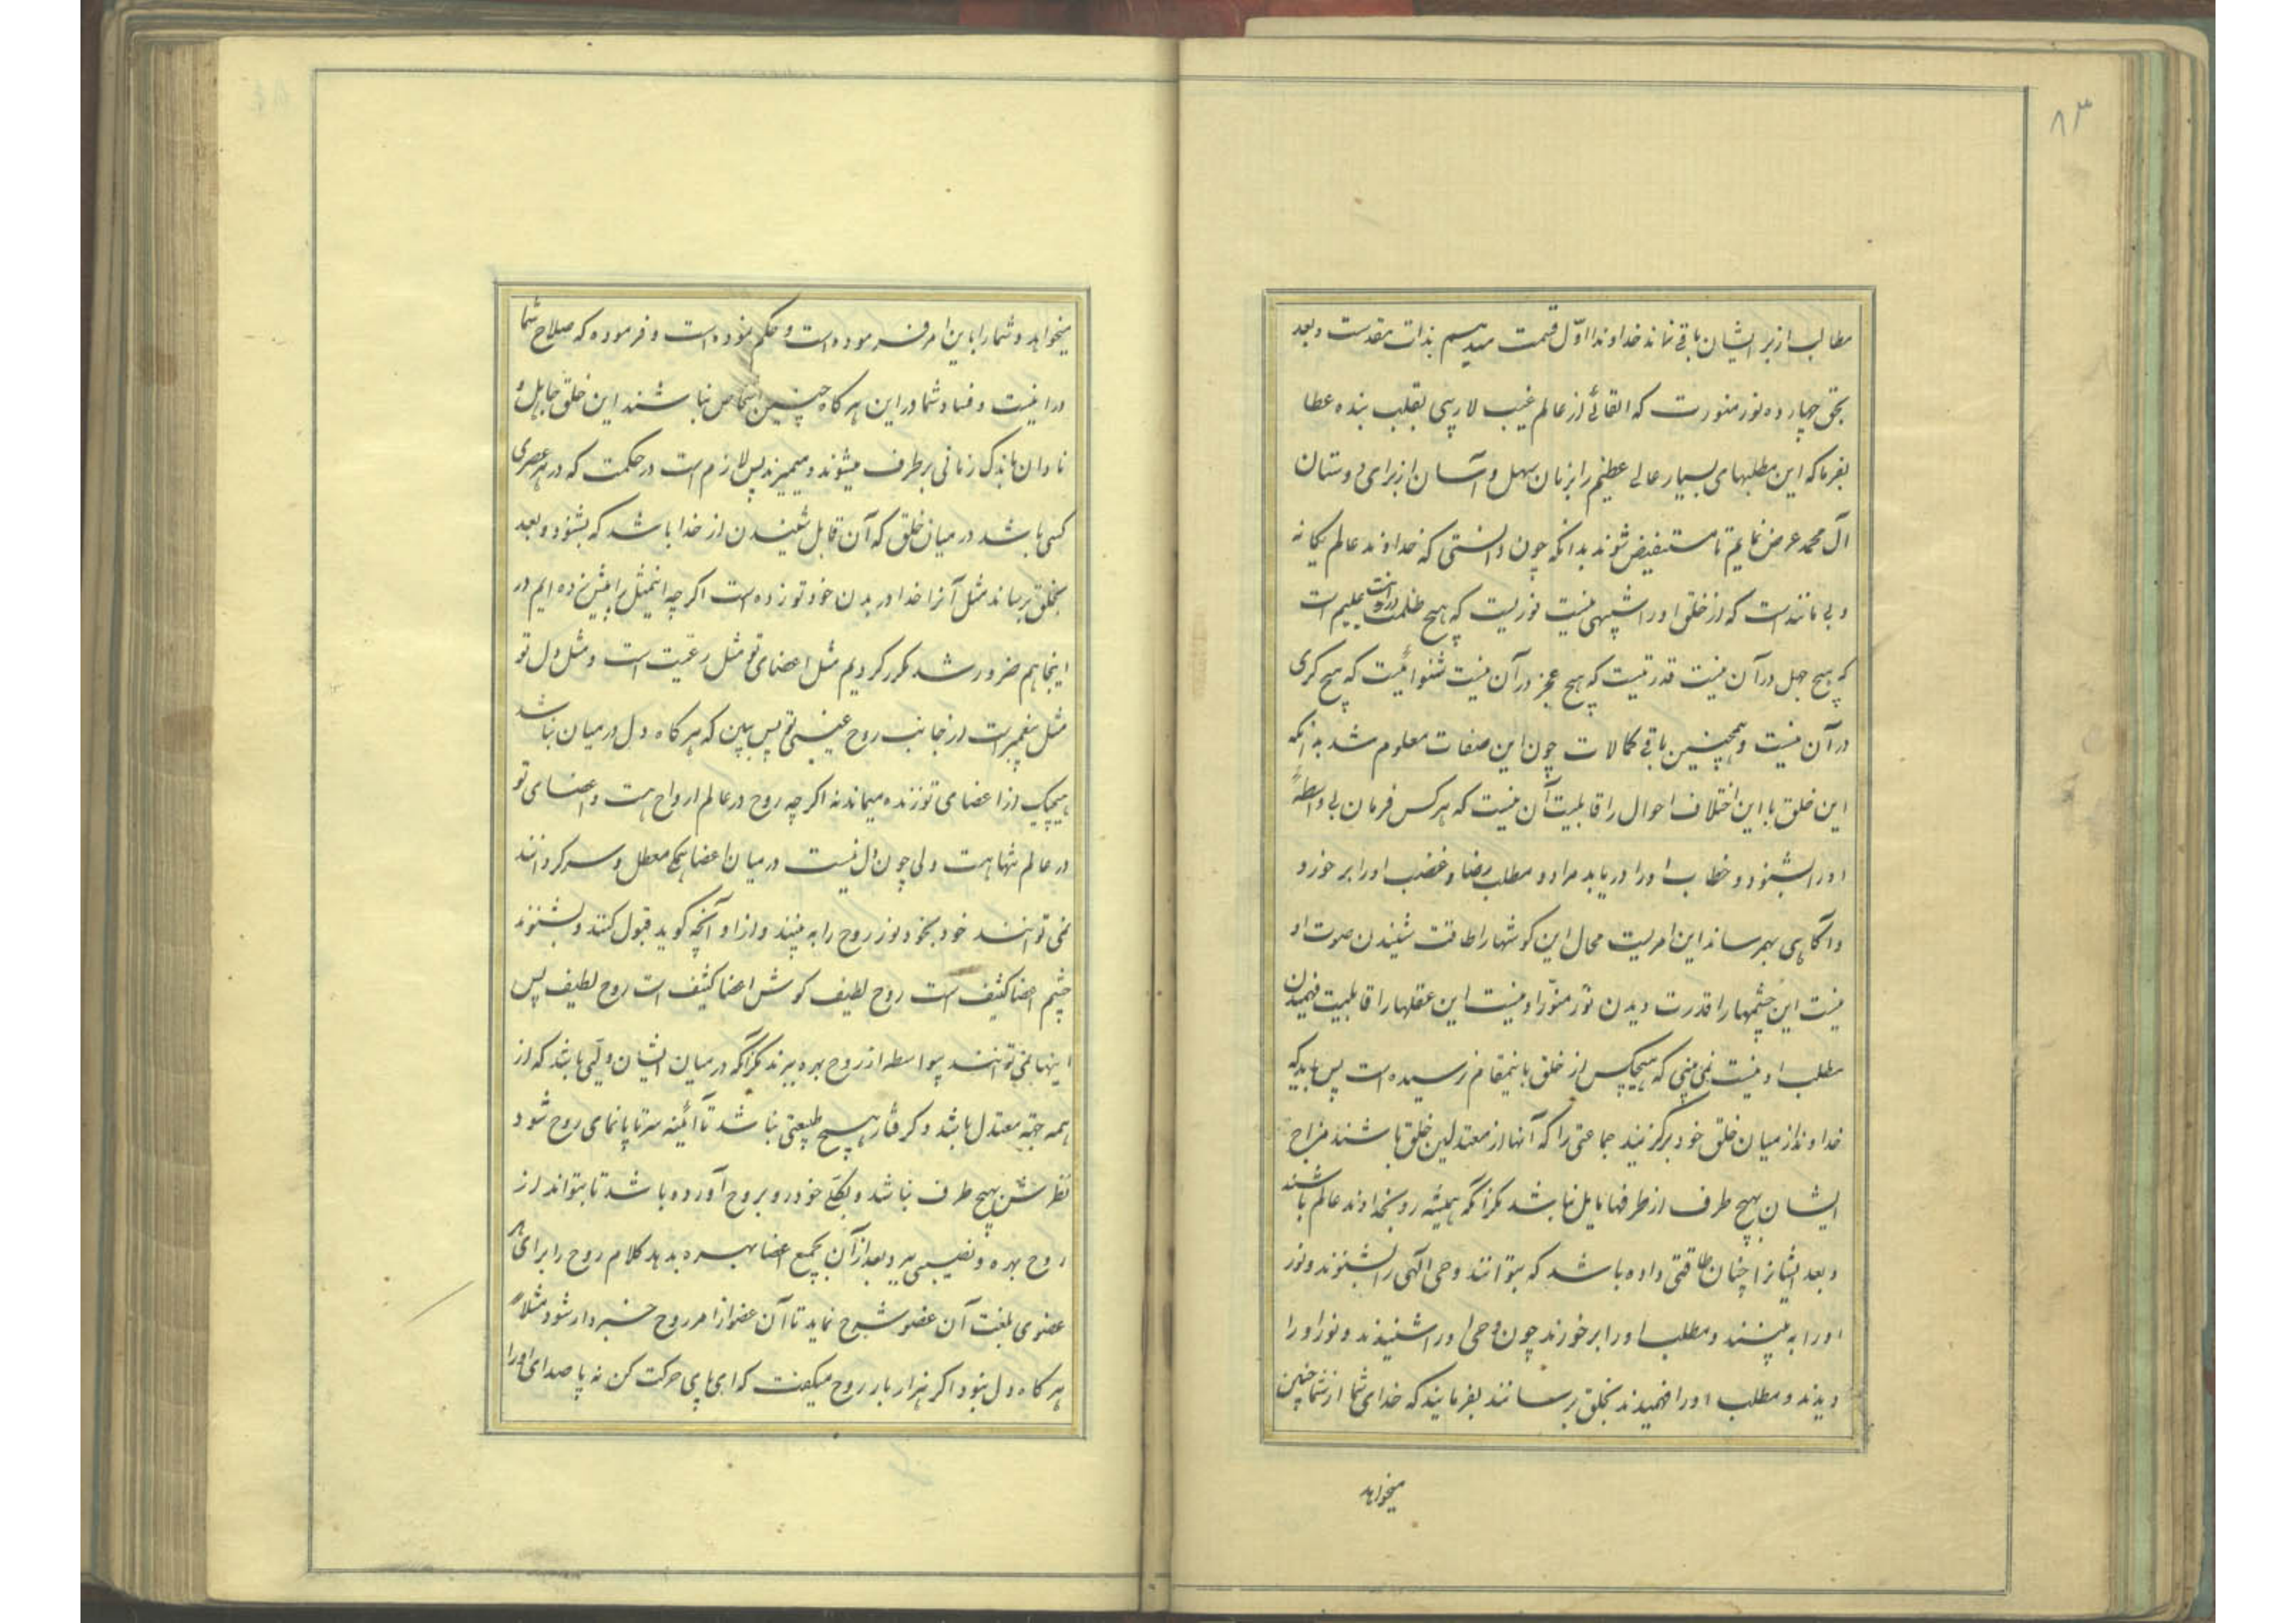 ۸۳
مطالب از برای ایشان باقی نماند خداوندا اوّل قسمت میدهیم بذات مقدست و بعد
بحق چهارده نور منورت که القائی از عالم غیب لاریبی بقلب بنده عطا
بفرما که این مطلبهای بسیار عالی عظیم را بزبان سهل و آسان از برای دوستان
آل محمد عرض نمایم تا مستفیض شوند بدانکه چون دانستی که خداوند عالم یگانه
و بی مانند است که از خلق اورا شبیهی نیست نوریست که هیچ ظلمت در او نیست علیم است
که هیچ جهل در آن نیست قدرتیست که هیچ عجز در آن نیست شنوائیست که هیچ کری
در آن نیست و همچنین باقی کمالات چون این صفات معلوم شد بدانکه
این خلق با این اختلاف احوال را قابلیت آن نیست که هر کس فرمان بی واسطهٔ
اورا بشنود و خطاب اورا دریابد مراد و مطلب رضا و غضب اورا برخورد
و آگاهی بهمرساند این امریست محال این گوشها را طاقت شنیدن صوت او
نیست این چشمها را قدرت دیدن نور منوّر او نیست این عقلها را قابلیت فهمیدن
مطلب او نیست نمی بینی که هیچکس از خلق باینمقام نرسیده است پس باید که
خداوند از میان خلق خود برگزیند جماعتی را که آنها از معتدلین خلق باشند مزاج
ایشان بهیچ طرف از طرفها مایل نباشد مگر آنکه همیشه رو بخداوند عالم باشند
و بعد ایشانرا چنان طاقتی داده باشد که بتوانند وحی الهی را بشنوند و نور
اورا به بینند و مطلب اورا برخورند چون وحی اورا شنیدند و نور اورا
دیدند و مطلب اورا فهمیدند بخلق برسانند بفرمایند که خدای شما از شما چنین
میخواهد
میخواهد و شما را باین امر فرموده است و حکم نموده است و فرموده که صلاح شما
در اینست و فساد شما در این هر گاه چنین اشخاص نباشند این خلق جاهل و
نادان باندک زمانی برطرف میشوند و میمیرند پس لازم است در حکمت که در هر عصری
کسی باشد در میان خلق که آن قابل شنیدن از خدا باشد که بشنود و بعد
بخلق برساند مثل آنرا خدا در بدن خود تو زده است اگر چه اینمثل را پیش زده ایم در
اینجا هم ضرور شد مکرر کردیم مثل اعضای تو مثل رعیت است و مثل دل تو
مثل پیغمبر است از جانب روح غیبی تو پس ببین که هر گاه دل در میان نباشد
هیچیک از اعضای تو زنده میماند نه اگر چه روح در عالم ارواح هست و اعضای تو
در عالم شما هست ولی چون دل نیست در میان اعضا همگی معطل و سرگردانند
نمی توانند خود بخود نور روح را به بینند و از او آنچه گوید قبول کنند و بشنوند
چشم اعضا کثیف است روح لطیف گوش اعضا کثیف است روح لطیف پس
اینها نمی توانند بیواسطه از روح بهره ببرند مگر آنکه در میان ایشان دلی باشد که از
همه جهة معتدل باشد و گرفتار هیچ طبیعتی نباشد تا آئینه سرتا پا نمای روح شود
نظرش بهیچ طرف نباشد و بکلی خود رو بروح آورده باشد تا بتواند از
روح بهره و نصیبی برد و بعد از آن بجمیع اعضا بهره بدهد کلام روح را برای هر
عضوی بلغت آن عضو شرح نماید تا آن عضو از امر روح خبردار شود مثلاً
هر گاه دل نبود اگر هزار بار روح میگفت که ای پای حرکت کن نه پا صدای اورا